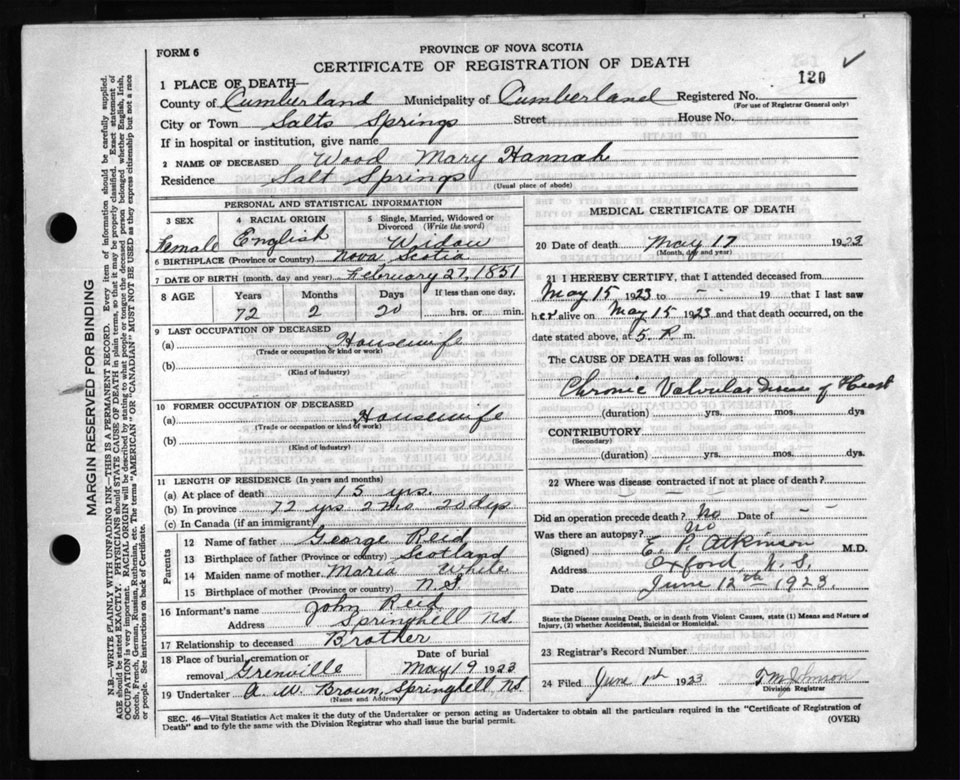 FORM 6
PROVINCE OF NOVA SCOTIA
CERTIFICATE OF REGISTRATION OF DEATH
120 ✓
1 PLACE OF DEATH—
County of Cumberland Municipality of Cumberland Registered No.
(For use of Registrar General only)
City or Town Salts Springs Street House No.
If in hospital or institution, give name
2 NAME OF DECEASED Wood Mary Hannah
Residence Salt Springs
(Usual place of abode)
PERSONAL AND STATISTICAL INFORMATION
3 SEX 4 RACIAL ORIGIN 5 Single, Married, Widowed or Divorced (Write the word)
Female English Widow
6 BIRTHPLACE (Province or Country) Nova Scotia
7 DATE OF BIRTH (month, day and year) February 27, 1851
8 AGE Years Months Days If less than one day,
72 2 20 hrs. or min.
9 LAST OCCUPATION OF DECEASED
(a) Housewife
(Trade or occupation or kind or work)
(b)
(Kind of industry)
10 FORMER OCCUPATION OF DECEASED
(a) Housewife
(Trade or occupation or kind of work)
(b)
(Kind of industry)
11 LENGTH OF RESIDENCE (In years and months)
(a) At place of death 15 yrs.
(b) In province 72 yrs 2 mo 20 dys
(c) In Canada (if an immigrant)
Parents
12 Name of father George Reid
13 Birthplace of father (Province or country) Scotland
14 Maiden name of mother Maria White
15 Birthplace of mother (Province or country) N.S
16 Informant's name John Reid
Address Springhill NS.
17 Relationship to deceased Brother
18 Place of burial, cremation or removal Grenville Date of burial May 19 1923
19 Undertaker A. W. Brown, Springhill NS
(Name and Address)
MEDICAL CERTIFICATE OF DEATH
20 Date of death May 17 1923
(Month, day and year)
21 I HEREBY CERTIFY, that I attended deceased from
May 15 1923 to - - 19 that I last saw
her alive on May 15 1923 and that death occurred, on the
date stated above, at 5. P. m.
The CAUSE OF DEATH was as follows:
Chronic Valvular Disease of Heart
(duration) yrs. mos. dys
CONTRIBUTORY
(Secondary)
(duration) yrs. mos. dys.
22 Where was disease contracted if not at place of death?
Did an operation precede death? No Date of - -
Was there an autopsy? No
(Signed) E. P. Atkinson M.D.
Address Oxford, N.S.
Date June 12th 1923.
State the Disease causing Death, or in death from Violent Causes, state (1) Means and Nature of
Injury, (2) whether Accidental, Suicidal or Homicidal.
23 Registrar's Record Number
24 Filed June 1923
Division Registrar
SEC. 46—Vital Statistics Act makes it the duty of the Undertaker or person acting as Undertaker to obtain all the particulars required in the "Certificate of Registration of
Death" and to fyle the same with the Division Registrar who shall issue the burial permit.
(OVER)
MARGIN RESERVED FOR BINDING
N.B.—WRITE PLAINLY WITH UNFADING INK—THIS IS A PERMANENT RECORD. Every item of information should be carefully supplied.
AGE should be stated EXACTLY. PHYSICIANS should STATE CAUSE OF DEATH in plain terms, so that it may be properly classified. Exact statement of
OCCUPATION is very important. RACIAL ORIGIN will be described by stating to what people or tongue the deceased person belonged whether English, Irish,
Scotch, French, German, Russian, Ruthenian, etc. The terms "AMERICAN" OR "CANADIAN" MUST NOT BE USED as they express citizenship but not a race
or people. See instructions on back of Certificate.